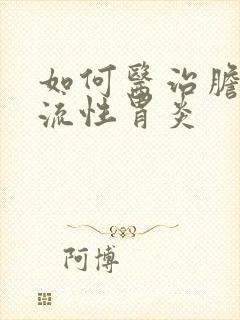 如何醫治膽
流性胃炎
阿博